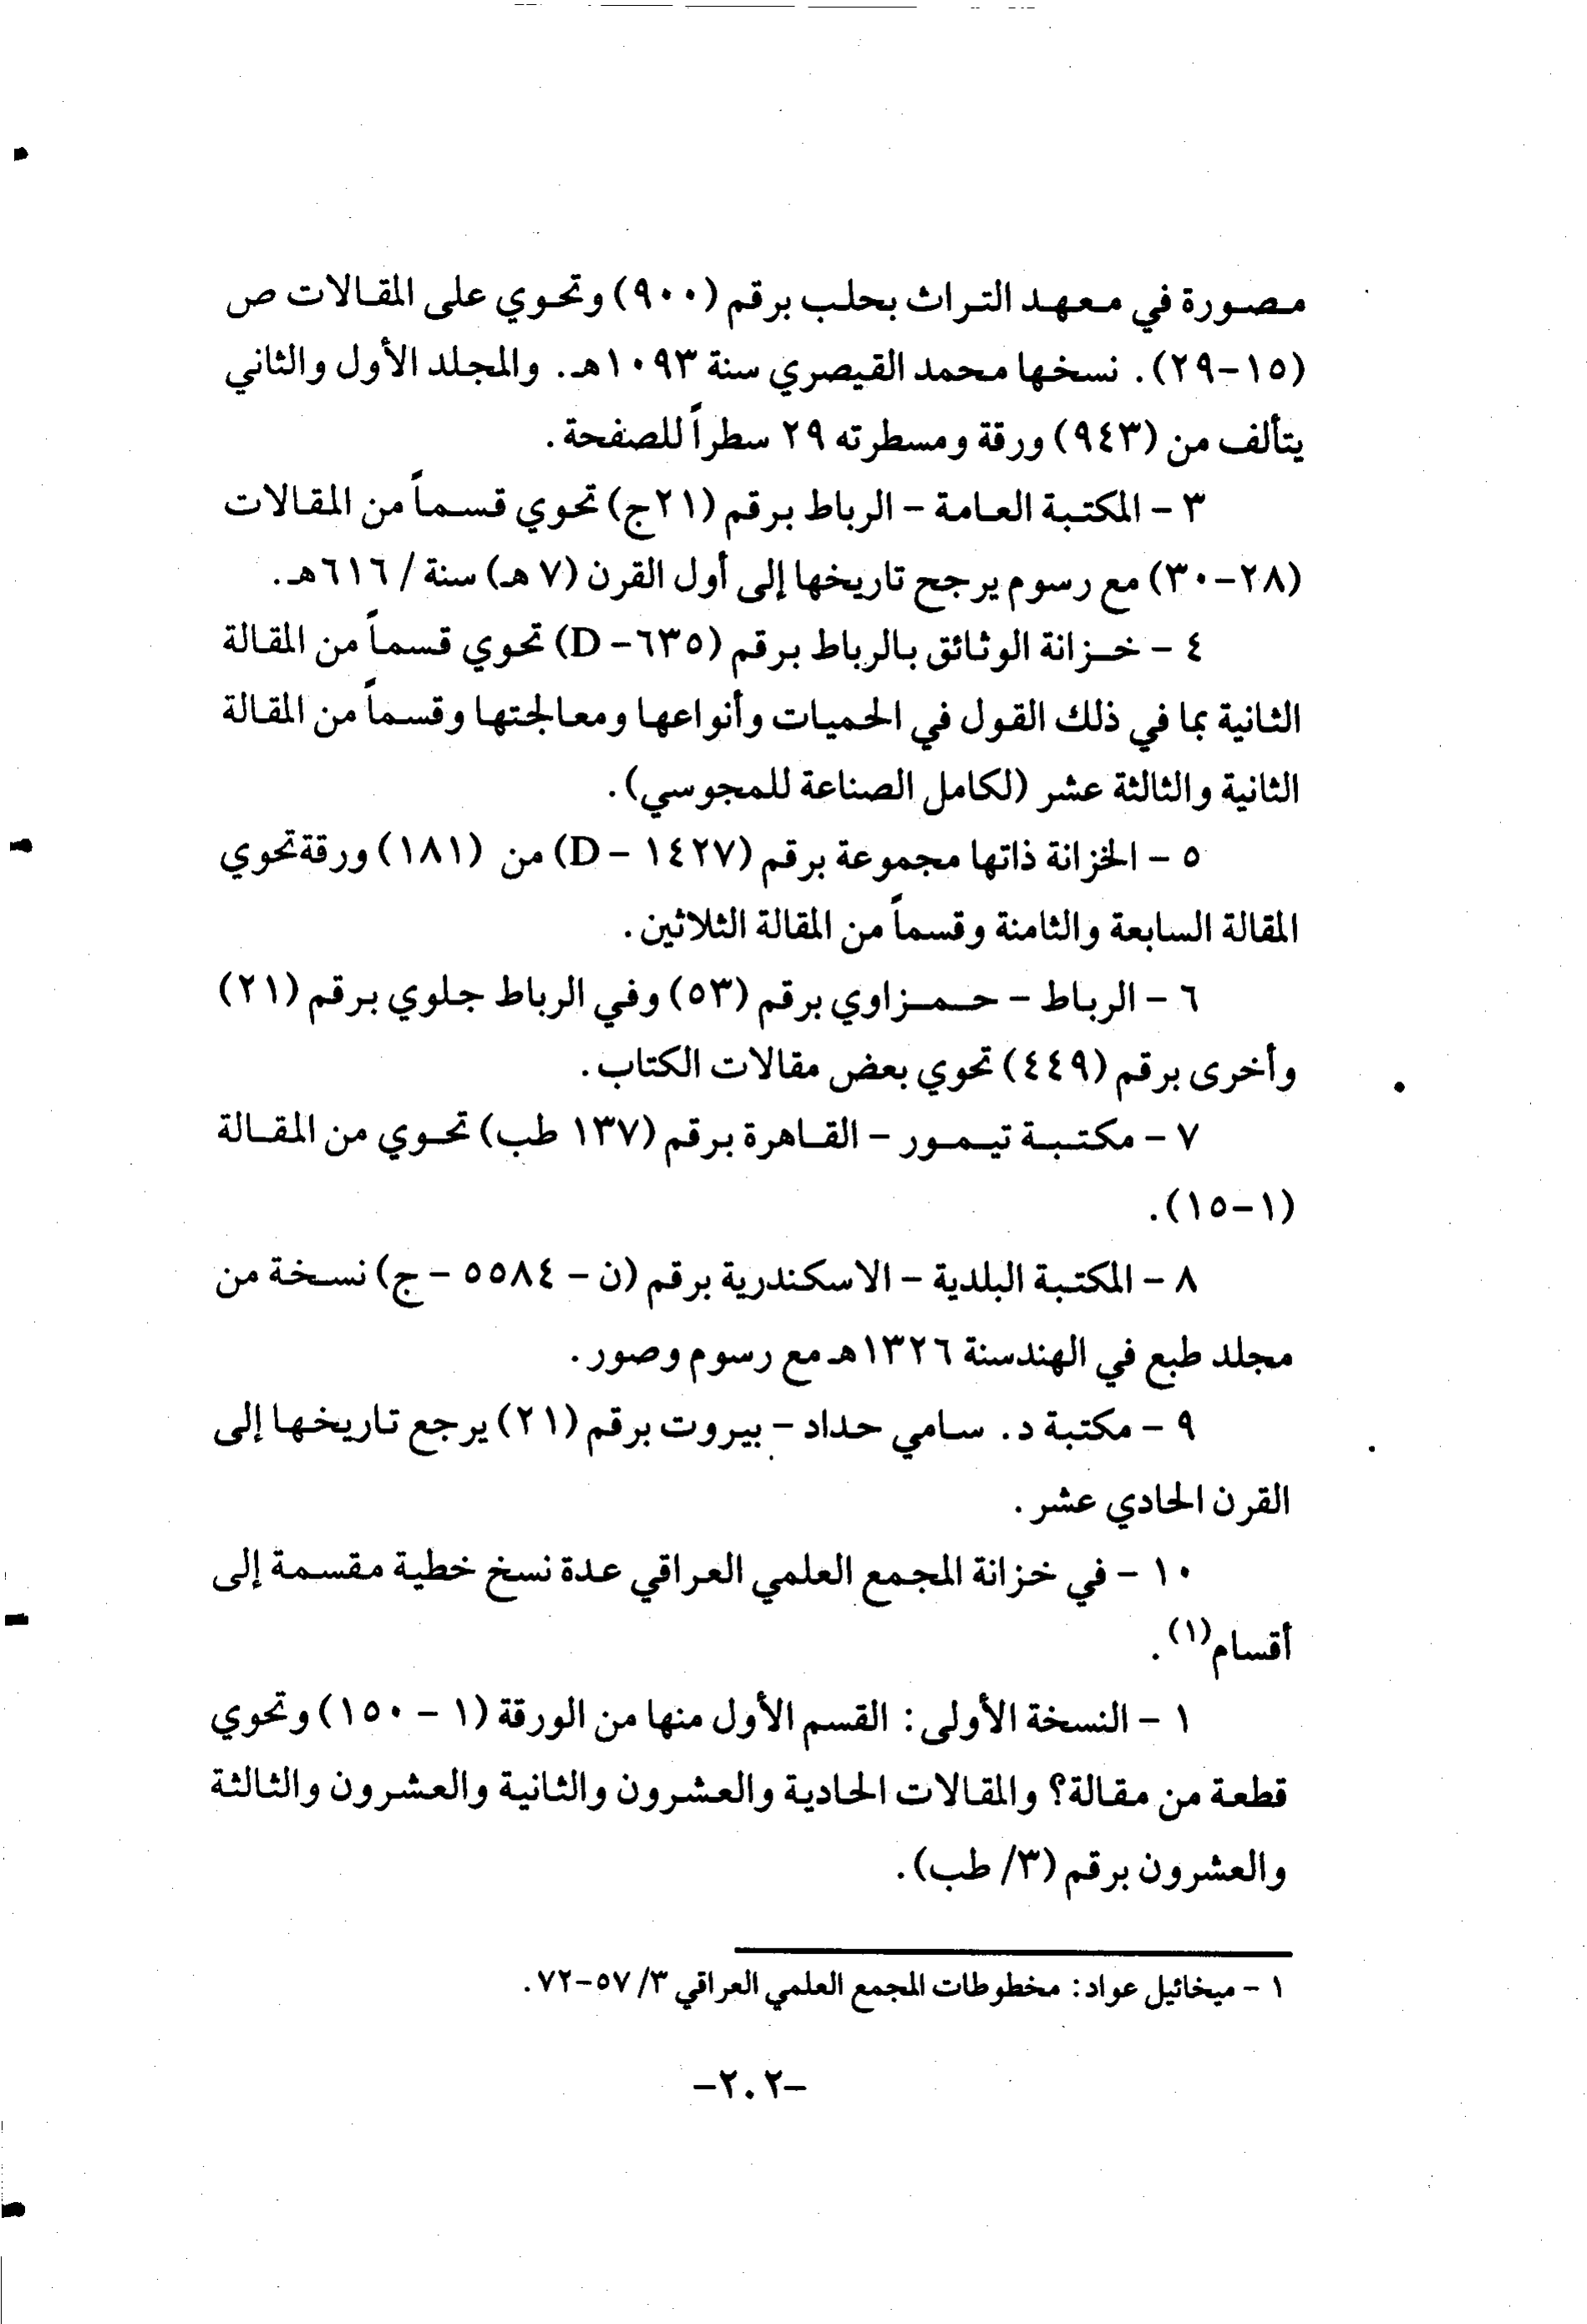 مصورة في معهد التراث بحلب برقم (٩٠٠) وتحوي على المقالات ص
(١٥-٢٩). نسخها محمد القيصري سنة ١٠٩٣هـ. والمجلد الأول والثاني
يتألف من (٩٤٣) ورقة ومسطرته ٢٩ سطراً للصفحة.
٣ - المكتبة العامة - الرباط برقم (٢١ج) تحوي قسماً من المقالات
(٢٨-٣٠) مع رسوم يرجح تاريخها إلى أول القرن (٧ هـ) سنة / ٦١٦هـ.
٤ - خزانة الوثائق بالرباط برقم (٦٣٥- D) تحوي قسماً من المقالة
الثانية بما في ذلك القول في الحميات وأنواعها ومعالجتها وقسماً من المقالة
الثانية والثالثة عشر (لكامل الصناعة للمجوسي).
٥ - الخزانة ذاتها مجموعة برقم (١٤٢٧ - D) من (١٨١) ورقة تحوي
المقالة السابعة والثامنة وقسماً من المقالة الثلاثين.
٦ - الرباط - حمزاوي برقم (٥٣) وفي الرباط جلوي برقم (٢١)
وأخرى برقم (٤٤٩) تحوي بعض مقالات الكتاب.
٧ - مكتبة تيمور - القاهرة برقم (١٣٧ طب) تحوي من المقالة
(١-١٥).
٨ - المكتبة البلدية - الاسكندرية برقم (ن - ٥٥٨٤ - ج) نسخة من
مجلد طبع في الهندسنة ١٣٢٦هـ مع رسوم وصور.
٩ - مكتبة د. سامي حداد - بيروت برقم (٢١) يرجع تاريخها إلى
القرن الحادي عشر.
١٠ - في خزانة المجمع العلمي العراقي عدة نسخ خطية مقسمة إلى
أقسام(١).
١ - النسخة الأولى: القسم الأول منها من الورقة (١ - ١٥٠) وتحوي
قطعة من مقالة؟ والمقالات الحادية والعشرون والثانية والعشرون والثالثة
والعشرون برقم (٣/ طب).
١ - ميخائيل عواد: مخطوطات المجمع العلمي العراقي ٣/ ٥٧-٧٢.
-٢٠٢-